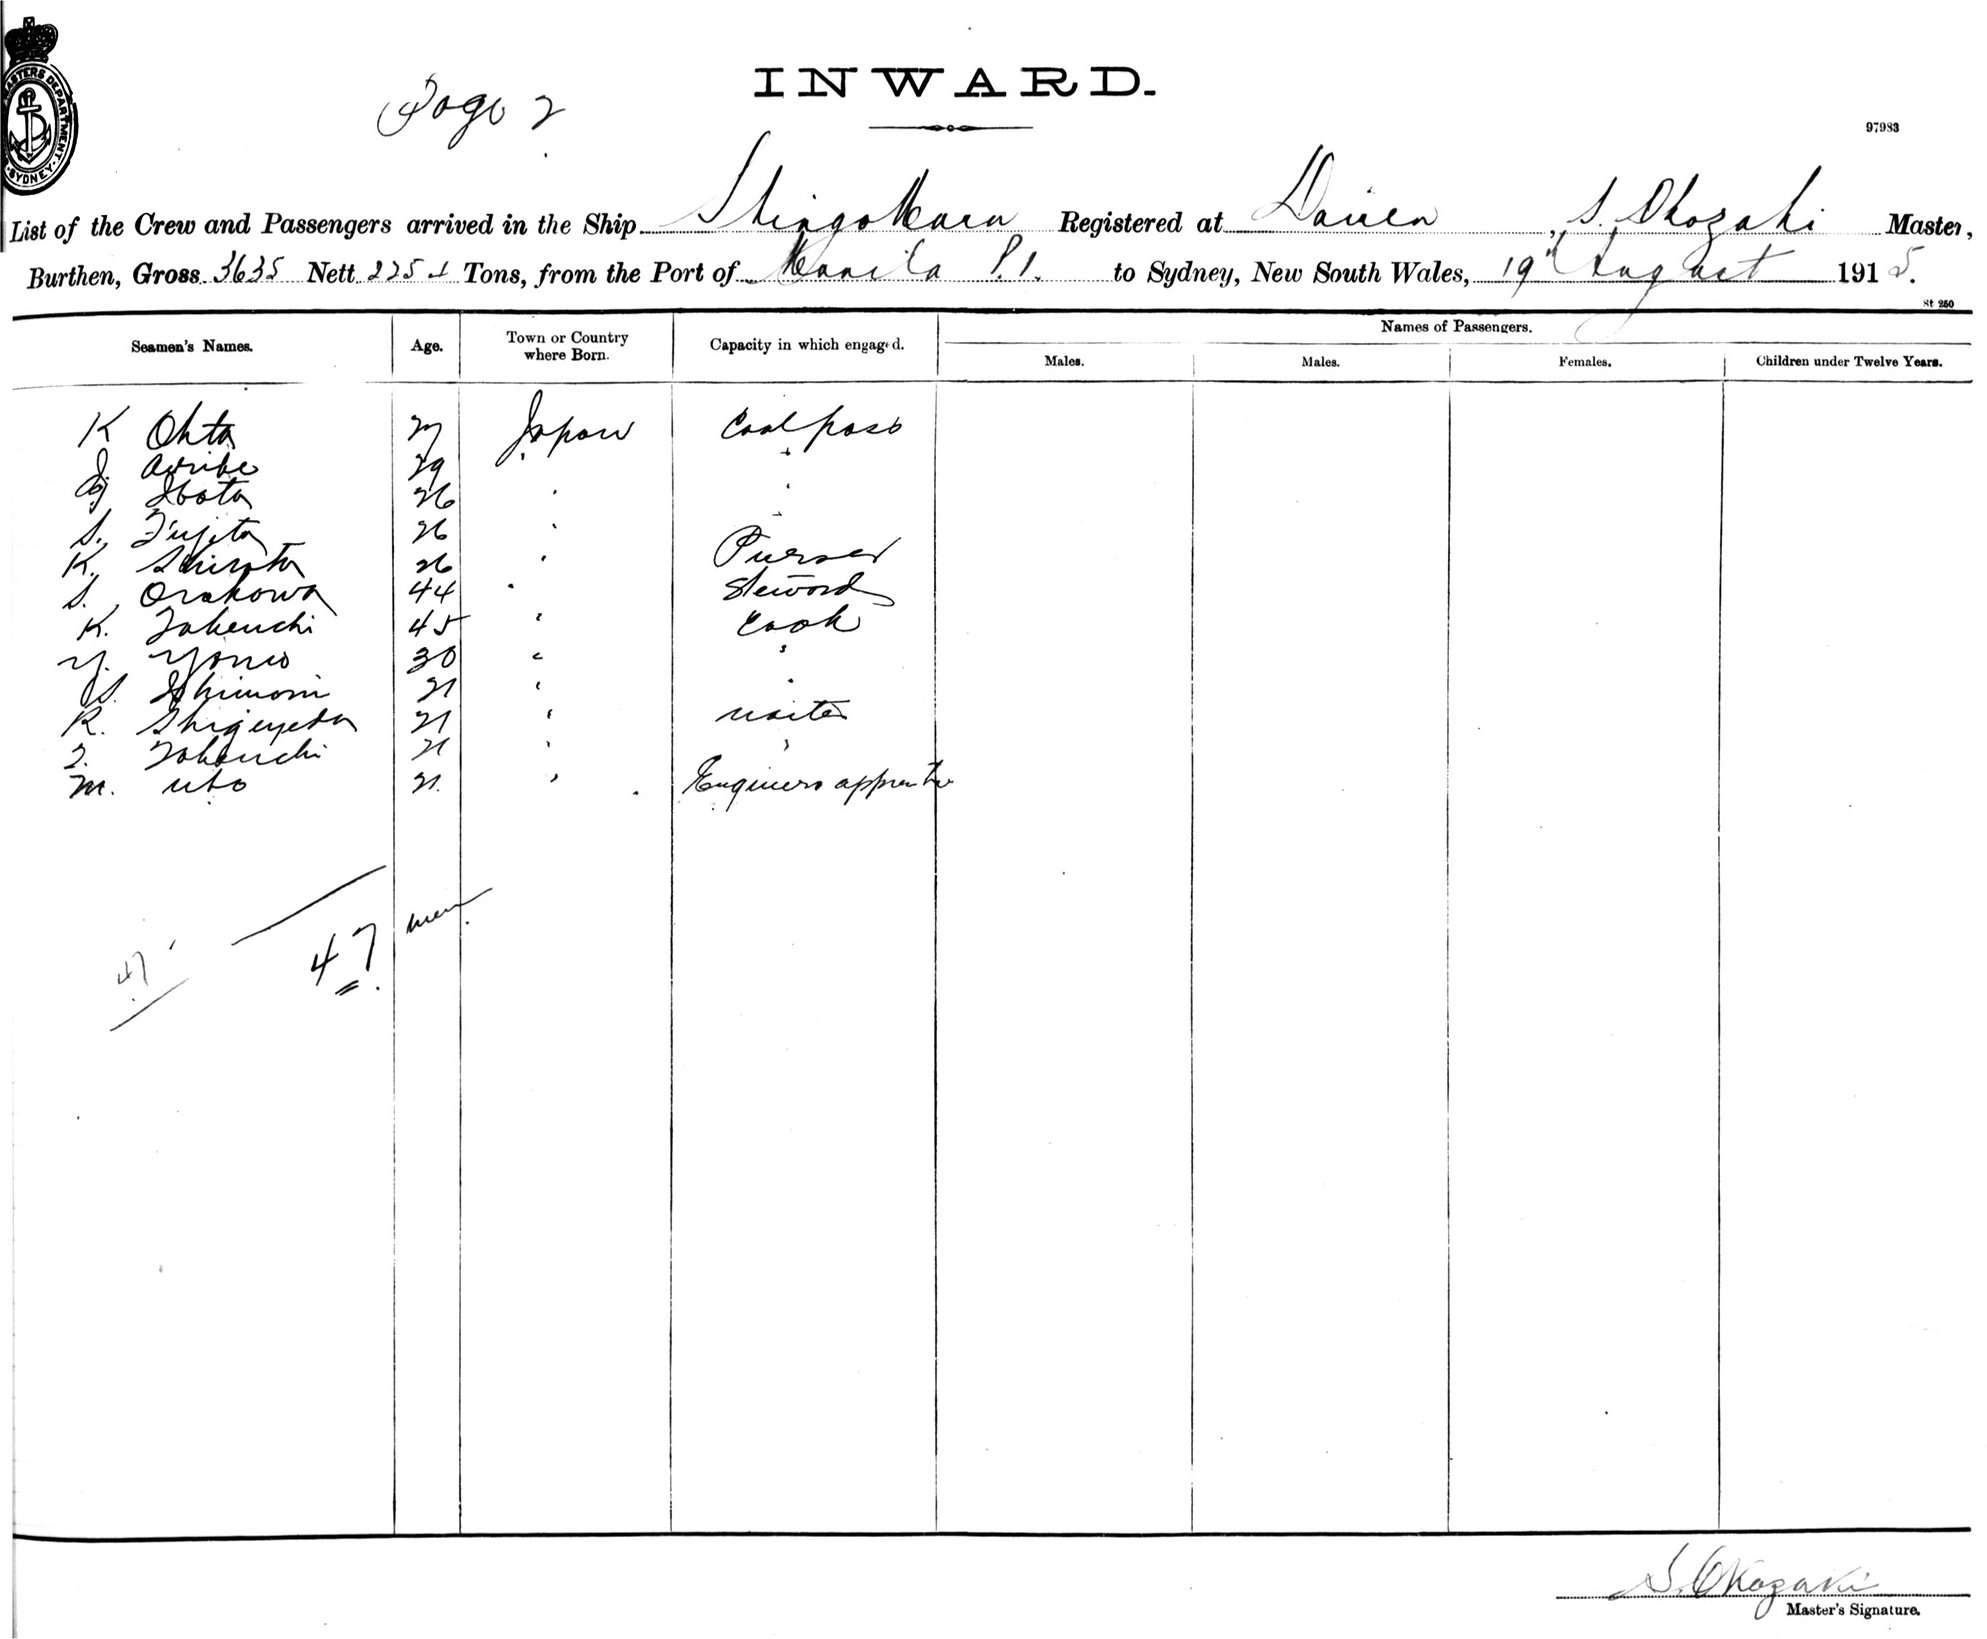 MASTERS DEPARTMENT. SYDNEY.
Page 2
INWARD.
97983
List of the Crew and Passengers arrived in the Ship Shingo Maru Registered at Dairen, S. Okazaki Master,
Burthen, Gross 3635 Nett 2254 Tons, from the Port of Manila P.I. to Sydney, New South Wales, 19th August 1915.
St 250
Seamen's Names. Age. Town or Country where Born. Capacity in which engaged. Names of Passengers.
Males. Males. Females. Children under Twelve Years.
K Ohta 27 Japan Coal pass
29 "
Ibota 26 " "
S. Fujita 26 " "
K. Shirota 26 " Purser
S. Orakowa 44 " Steward
K. Takeuchi 45 " Cook
Y. 30 " "
S. 21 " "
R. Shigeyeda 21 " waiter
T. Takeuchi 21 " "
M. Ubo 21. " Engineers apprentice
47 men
47
S. Okazaki
Master's Signature.